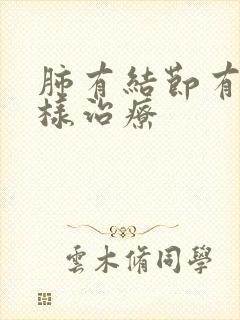 肺有結節有
樣治療
雲木脩同學